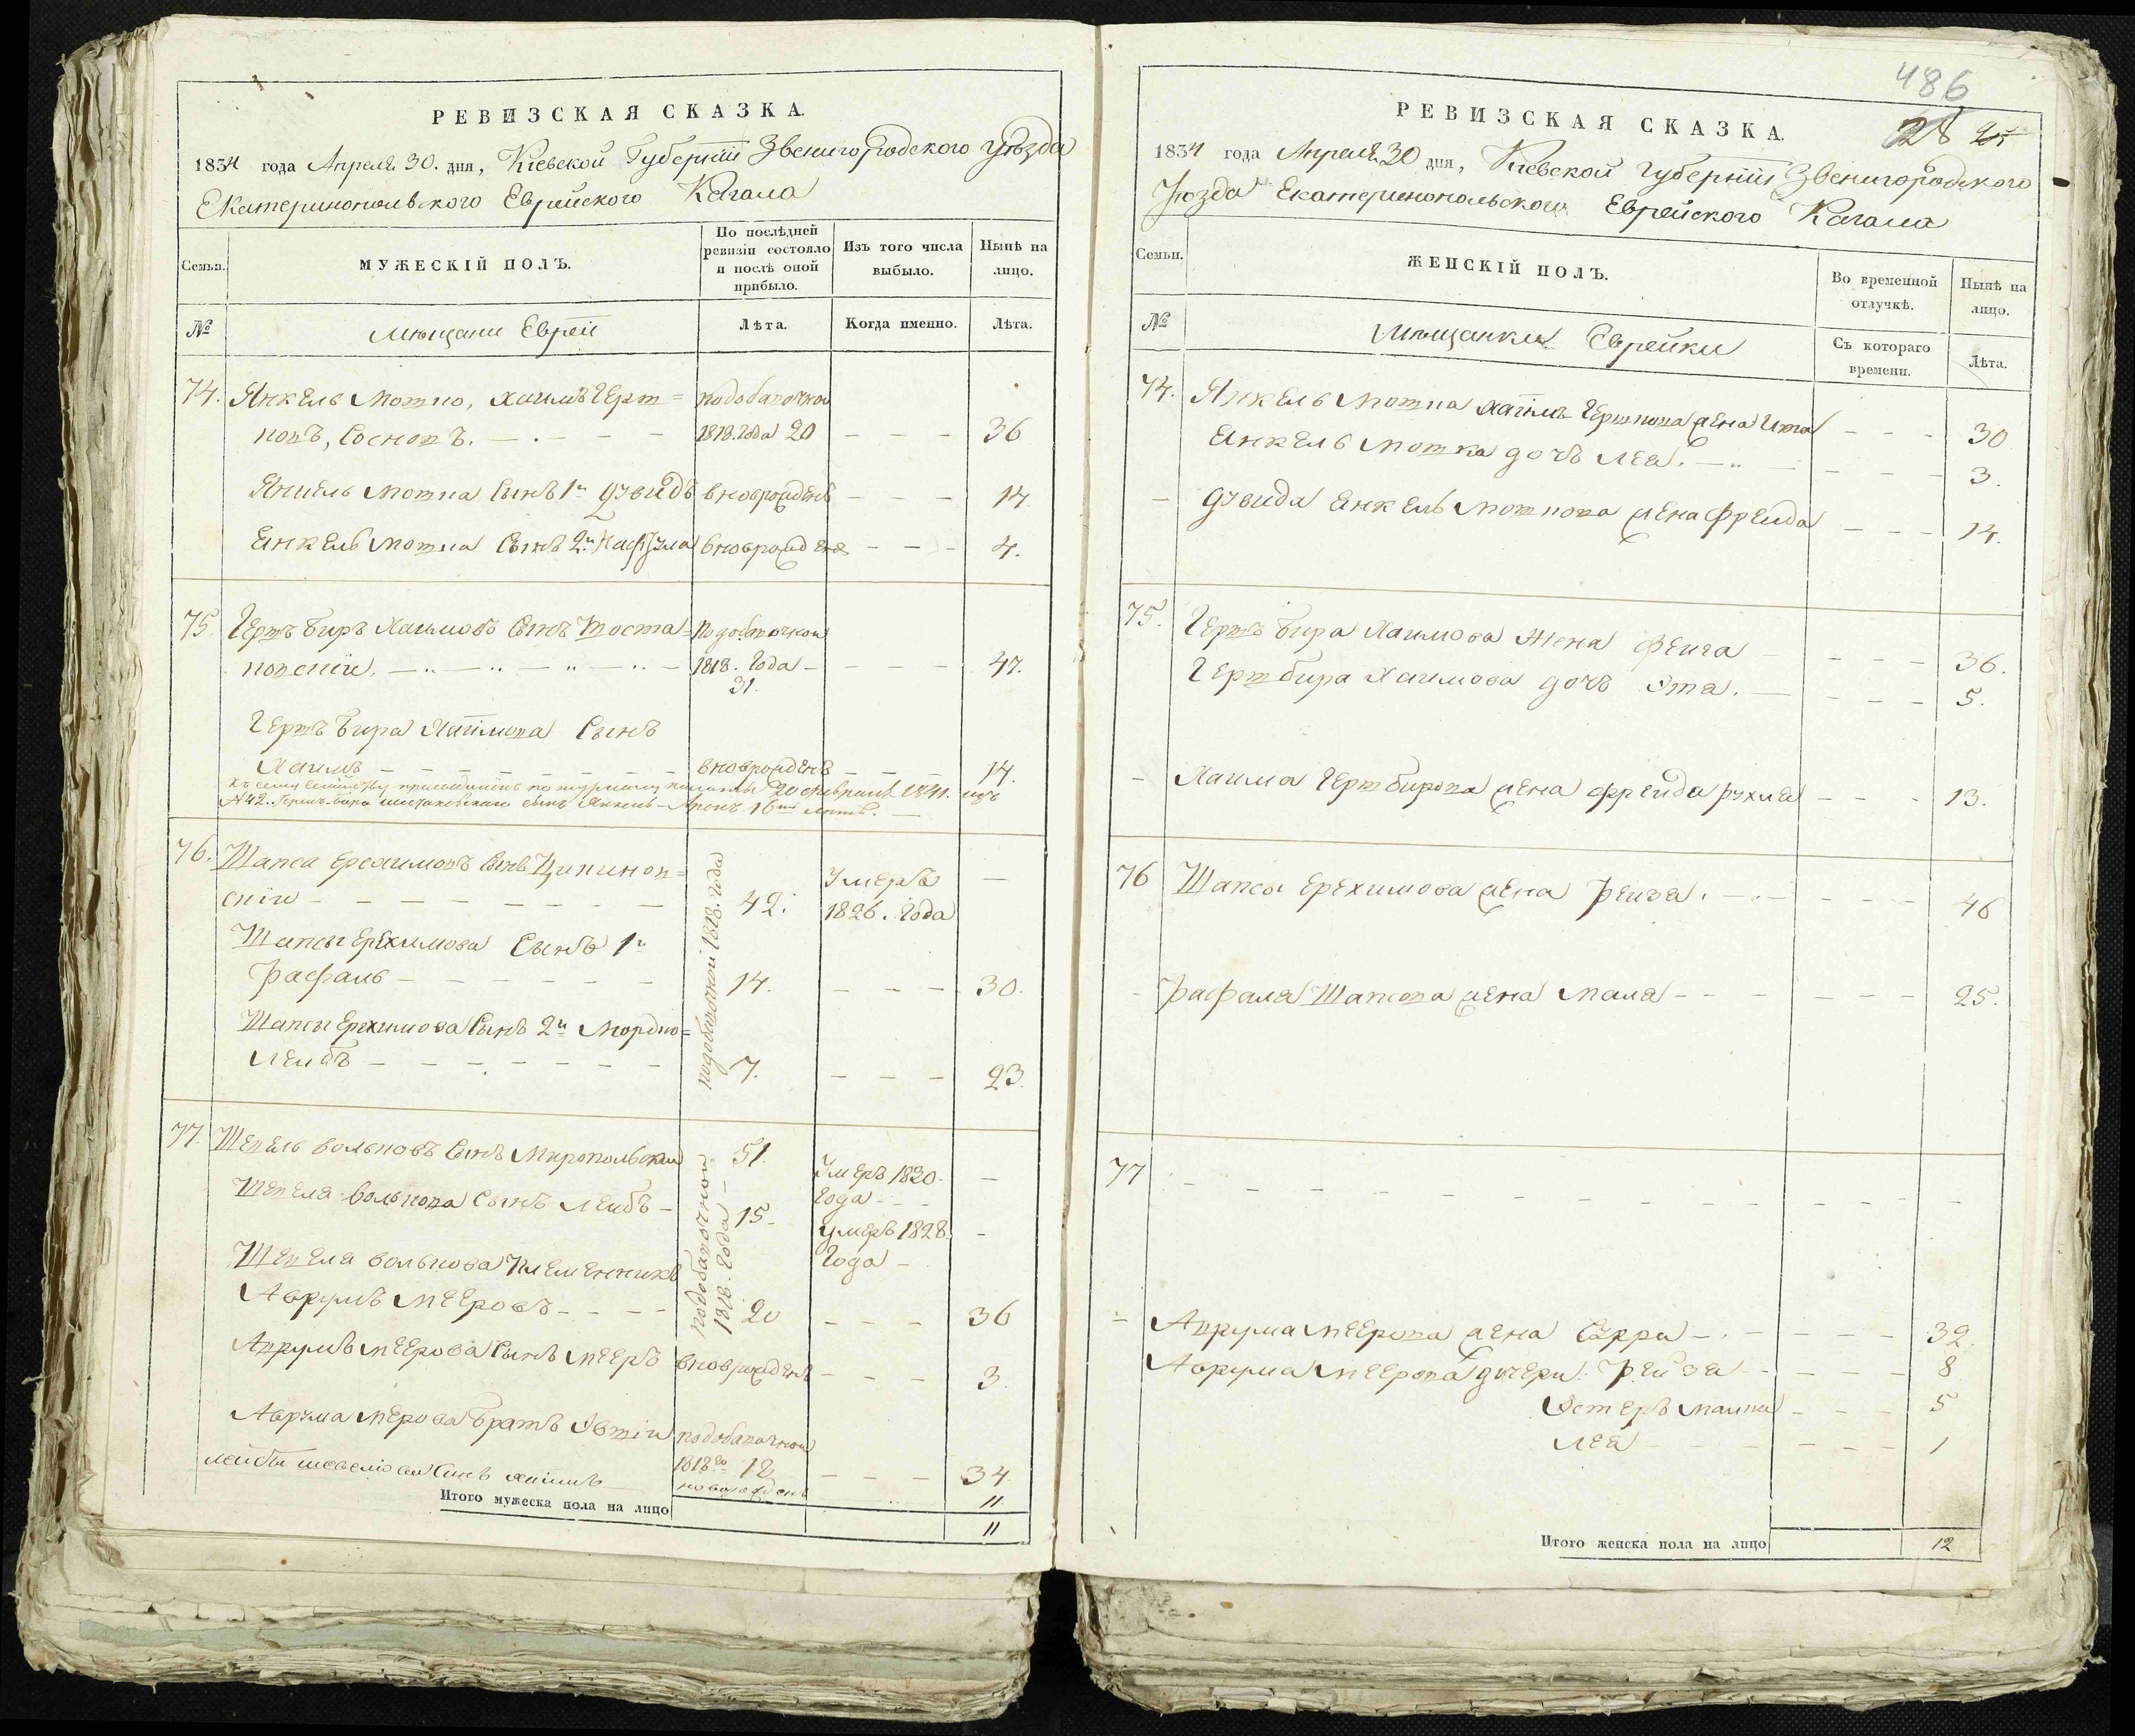 РЕВИЗСКАЯ СКАЗКА.
1834 года Апреля 30. дня, Кіевской Губерніи Звенигородского уѣзда
Екатеринопольского Еврейского Кагала
Семьи.
МУЖЕСКІЙ ПОЛЪ.
По послѣдней ревизіи состояло и послѣ оной прибыло.
Изъ того числа выбыло.
Нынѣ на лицо.
№
Мѣщани Евреи
Лѣта.
Когда именно.
Лѣта.
74. Янкель Мотко, Хаимъ Герш= подобавочной
ковъ, Сосновъ. 1818. года 20 — — — 36
Янкель Мотка Сынъ 1й Дувидъ вновьрожденъ — — — 14.
Енкель Мотка Сынъ 2й Нафтула вновьрожденъ — — — 4.
75. Гершъ Биръ Хаимовъ Сынъ Шоста= подобавочной
ковскій. 1818. года — — — — 47.
31.
Гершъ Бира Хаимова Сынъ
Хаимъ — — — вновьрожденъ — — — 14.
Къ сему семейству 20 февраля 1841. изъ
№ 42. Гершъ-Бира сынъ Янкель 16 лѣтъ.
76. Шапса Ерехимовъ Сынъ Ципинов=
скій — — — 42. Умеръ 1826. года —
подобавочной 1818. года
Шапсы Ерехимова Сынъ 1й
Рафаль — — — 14. — — — 30.
Шапсы Ерехимова Сынъ 2й Мордко=
Лейбъ — — — 7. — — — 23.
77. Шевель Вольковъ Сынъ Миропольскій 51. Умеръ 1830. года —
подобавочной 1818. года
Шевеля Волькова Сынъ Лейбъ — 15. умеръ 1828. года —
Шевеля Волькова Племенникъ
Аврумъ Мееровъ — — 20 — — — 36
Аврумъ Меерова Сынъ Мееръ вновьрожденъ — — — 3.
Аврума Мерова Братъ Овшій подобавочной
1818. го 12 — — — 34.
Лейбы Сынъ Хаимъ новорожденъ 11
Итого мужеска пола на лицо 11
486
28
РЕВИЗСКАЯ СКАЗКА.
1834 года Апреля 30 дня, Кіевской Губерніи Звенигородского
Уѣзда Екатеринопольского Еврейского Кагала
Семьи.
ЖЕНСКІЙ ПОЛЪ.
Во временной отлучкѣ.
Нынѣ на лицо.
№
Мѣщанки Еврейки
Съ котораго времени.
Лѣта.
74. Янкель Мотка Хаимъ Гершкова жена Ита — — — 30
Енкель Мотка дочь Леа. — — — 3.
— Дувида Енкель Моткова жена Фрейда — — — 14.
75. Гершъ Бира Хаимова Жена Фейга — — — 36.
Гершбира Хаимова дочь Эта. — — — 5.
— Хаима Гершбирова жена Фрейда Рухля — — — 13.
76 Шапсы Ерехимова жена Рейза. — — — 46
— Рафаля Шапсова жена Маля — — — 25.
77 — — — —
— Аврума Меерова жена Сурра — — — 32.
Аврума Меерова дочери: Рейза — — — 8
Эстеръ Малка — — — 5
Леа — — — 1
Итого женска пола на лицо 12